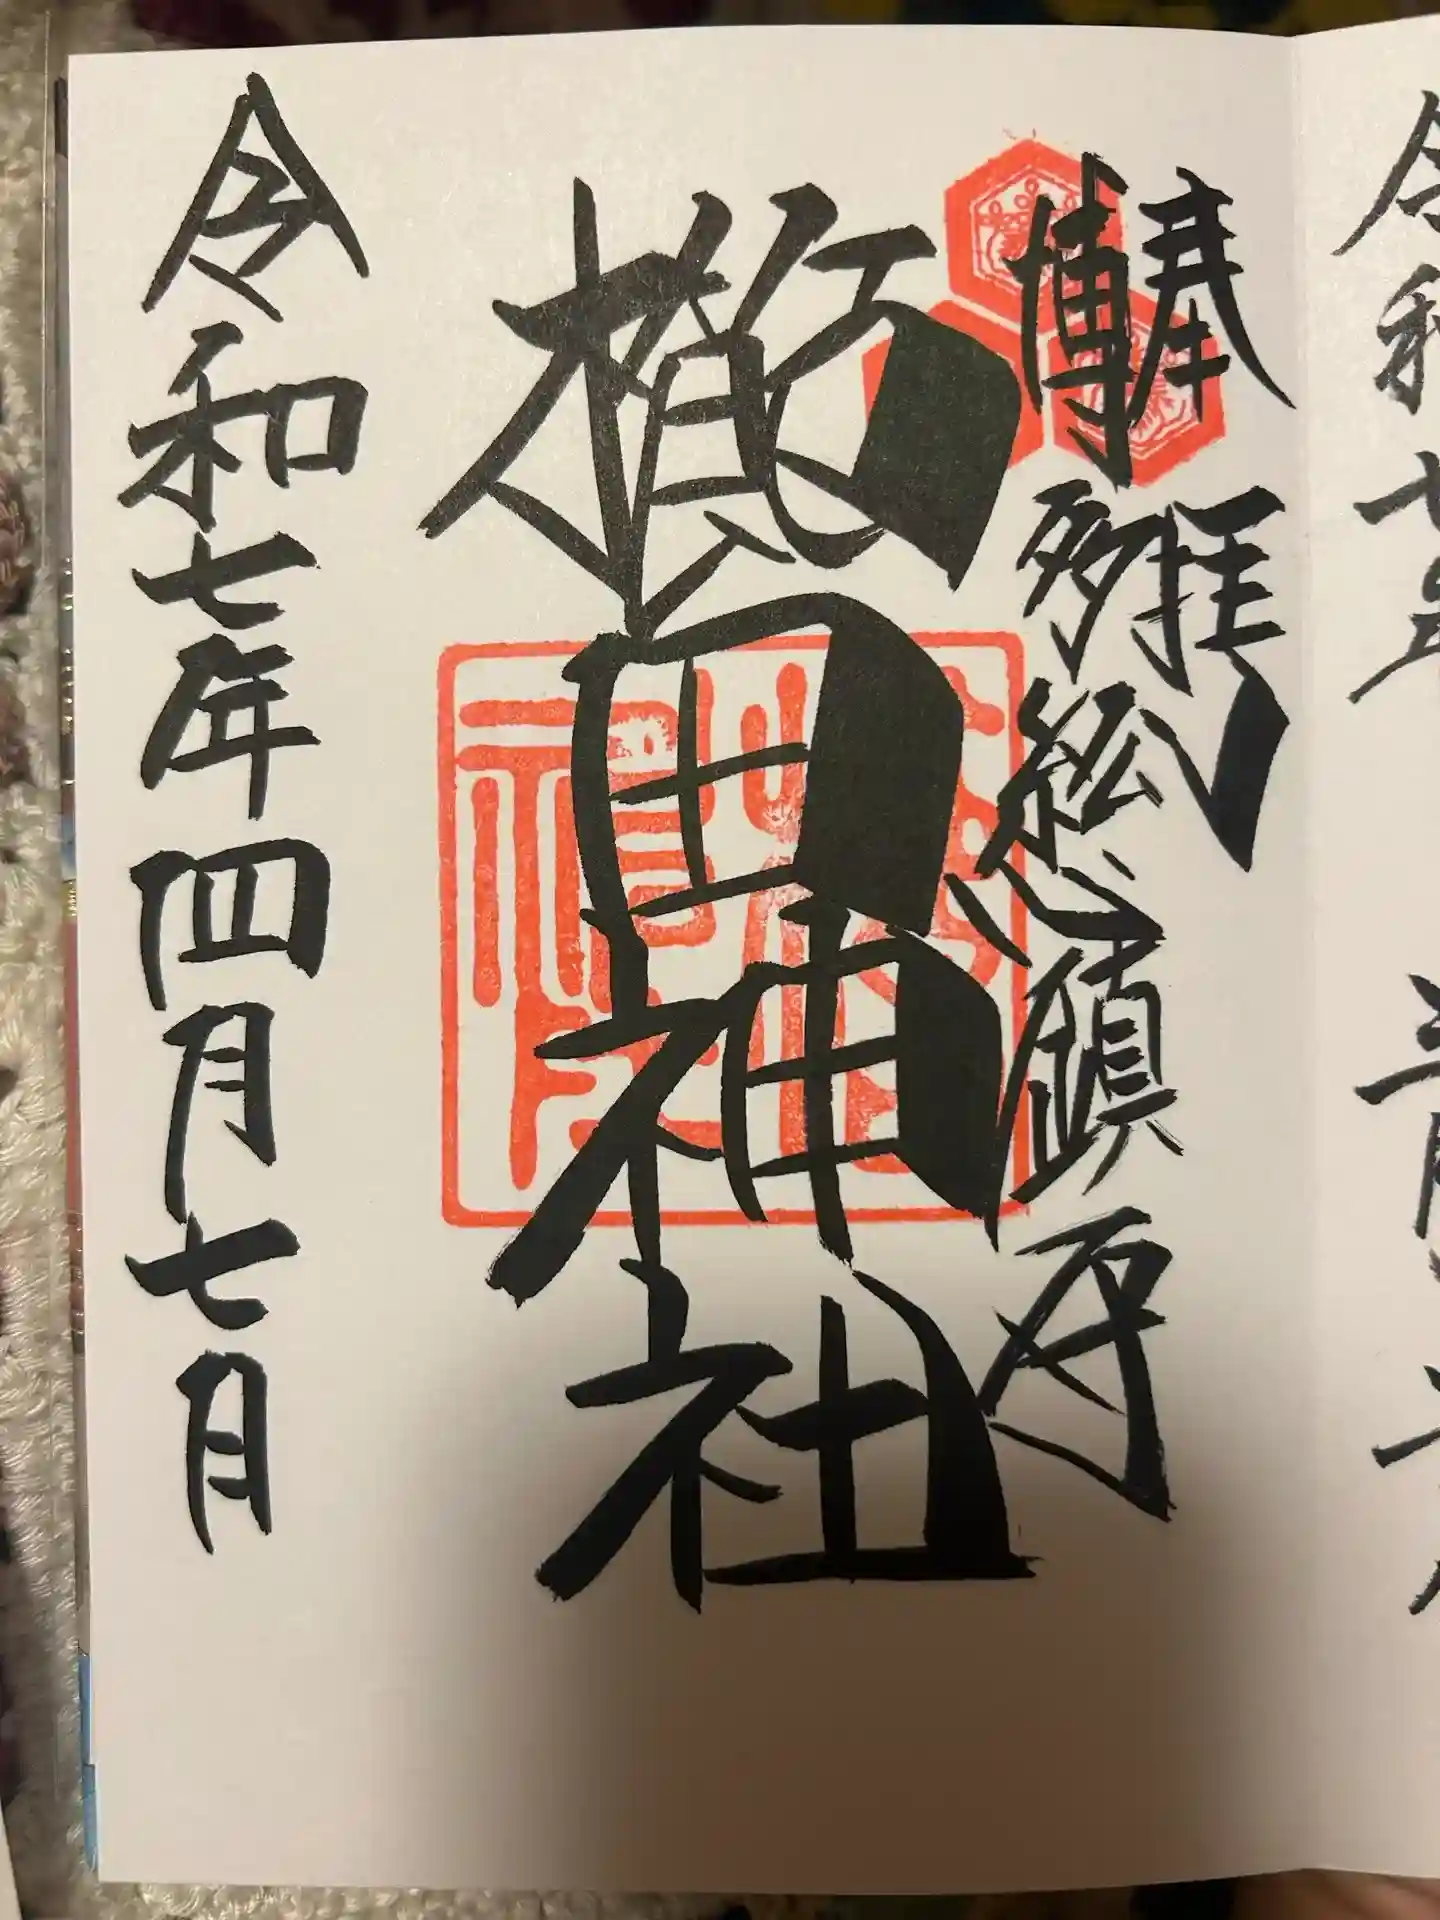 令和七年 三月
奉拝
博多総鎮守
櫛田神社
令和七年四月七日